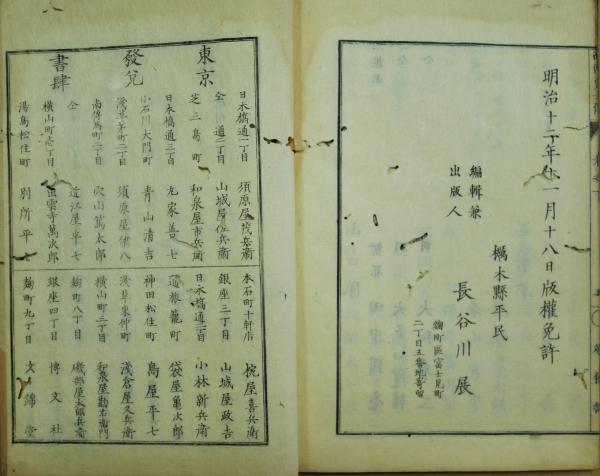 明治十二年十一月十八日版權免許
栃木縣平民
編輯兼
出版人
長谷川展
麹町區富士見町
二丁目五番地寄留
東京
發兌
書肆
日本橋通一丁目 須原屋茂兵衞
仝 通二丁目 山城屋佐兵衞
芝三島町 和泉屋市兵衞
日本橋通三丁目 丸家善七
小石川大門町 青山清吉
淺草茅町二丁目 須原屋伊八
南傳馬町二丁目 穴山篤太郎
仝 近江屋半七
横山町壱丁目 出雲寺萬次郎
湯島松住町 別所平七
本石町十軒店 椀屋喜兵衞
銀座三丁目 山城屋政吉
日本橋通二丁目 小林新兵衞
通旅籠町 袋屋亀次郎
神田松住町 島屋平七
淺草東仲町 淺倉屋久兵衞
横山町三丁目 和泉屋勘右衞門
麹町八丁目 磯部屋太郎兵衞
銀座四丁目 博文社
麹町九丁目 文錦堂